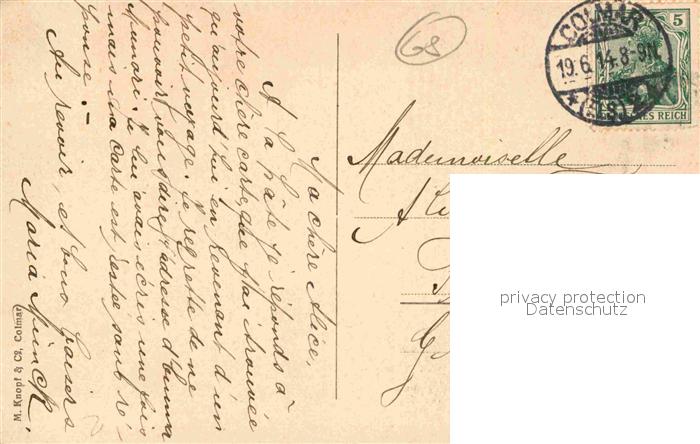 Ma chère Alice,
A la hâte je réponds à
votre chère carte, que j'ai trouvée
qu'aujourd'hui en revenant d'un
petit voyage. Je regrette de ne
pouvoir vous dire l'adresse d'Emma
Je lui avais écris une fois
mais ma carte est restée sans ré-
ponse. -
Au revoir, et bons baisers
Maria Minck.
M. Knopf & Co, Colmar
68
COLMAR
19.6.14.8-9N.
*(ELS)
5
REICH
Mademoiselle
Ali
privacy protection
Datenschutz